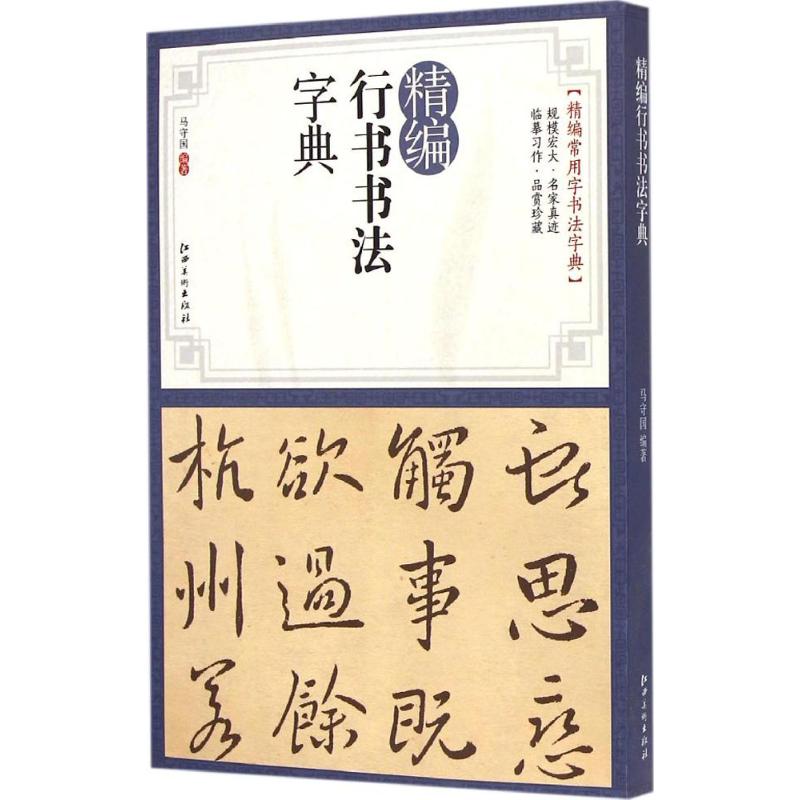 【精编常用字书法字典】
规模宏大·名家真迹
临摹习作·品赏珍藏
精编
行书书法
字典
马守国 编著
江西美術出版社
思
觸事既
欲過餘
杭州若
精编行书书法字典
马守国 编著
江西美術出版社